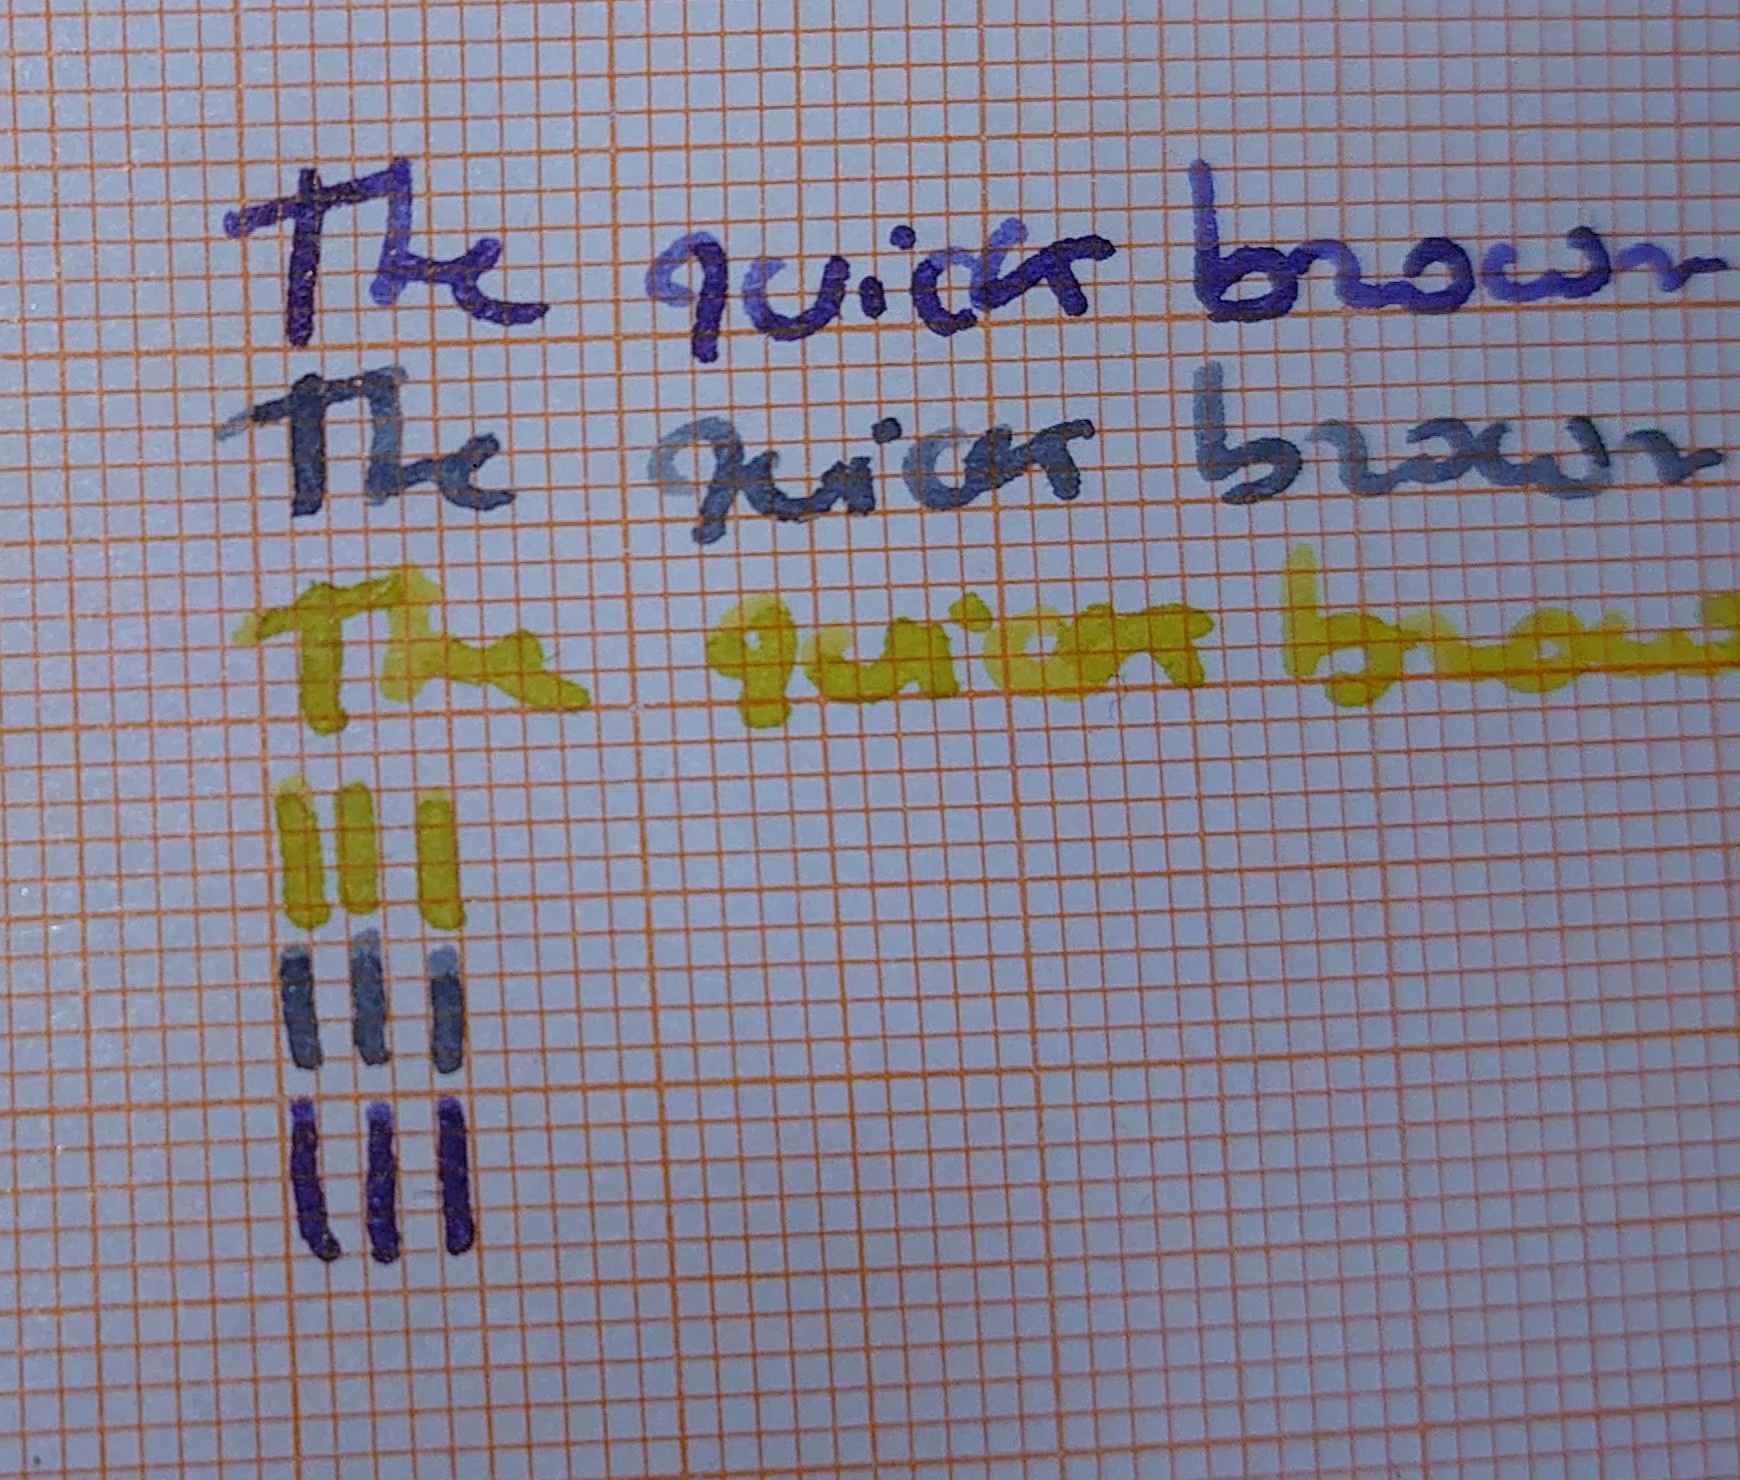 The quick brown
The quick brown
The quick brown